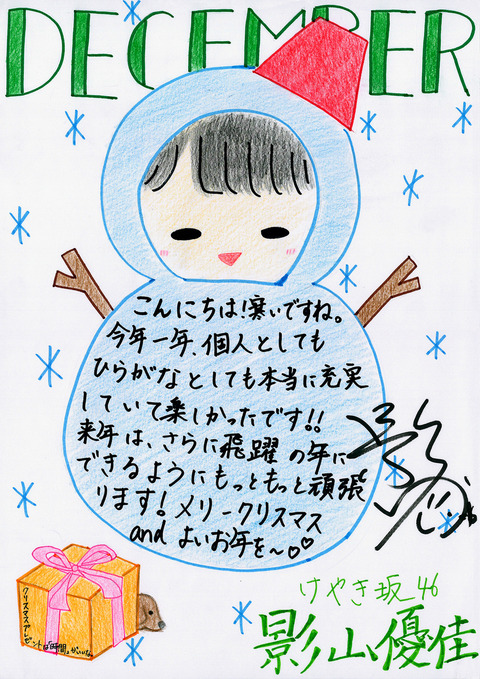 DECEMBER
こんにちは！寒いですね。
今年一年、個人としても
ひらがなとしても本当に充実
していて楽しかったです!!
来年は、さらに飛躍の年に
できるようにもっともっと頑張
ります！メリークリスマス
and よいお年を〜♡♡
クリスマスプレゼ
ントは「時間」がいいな。
けやき坂46
影山優佳